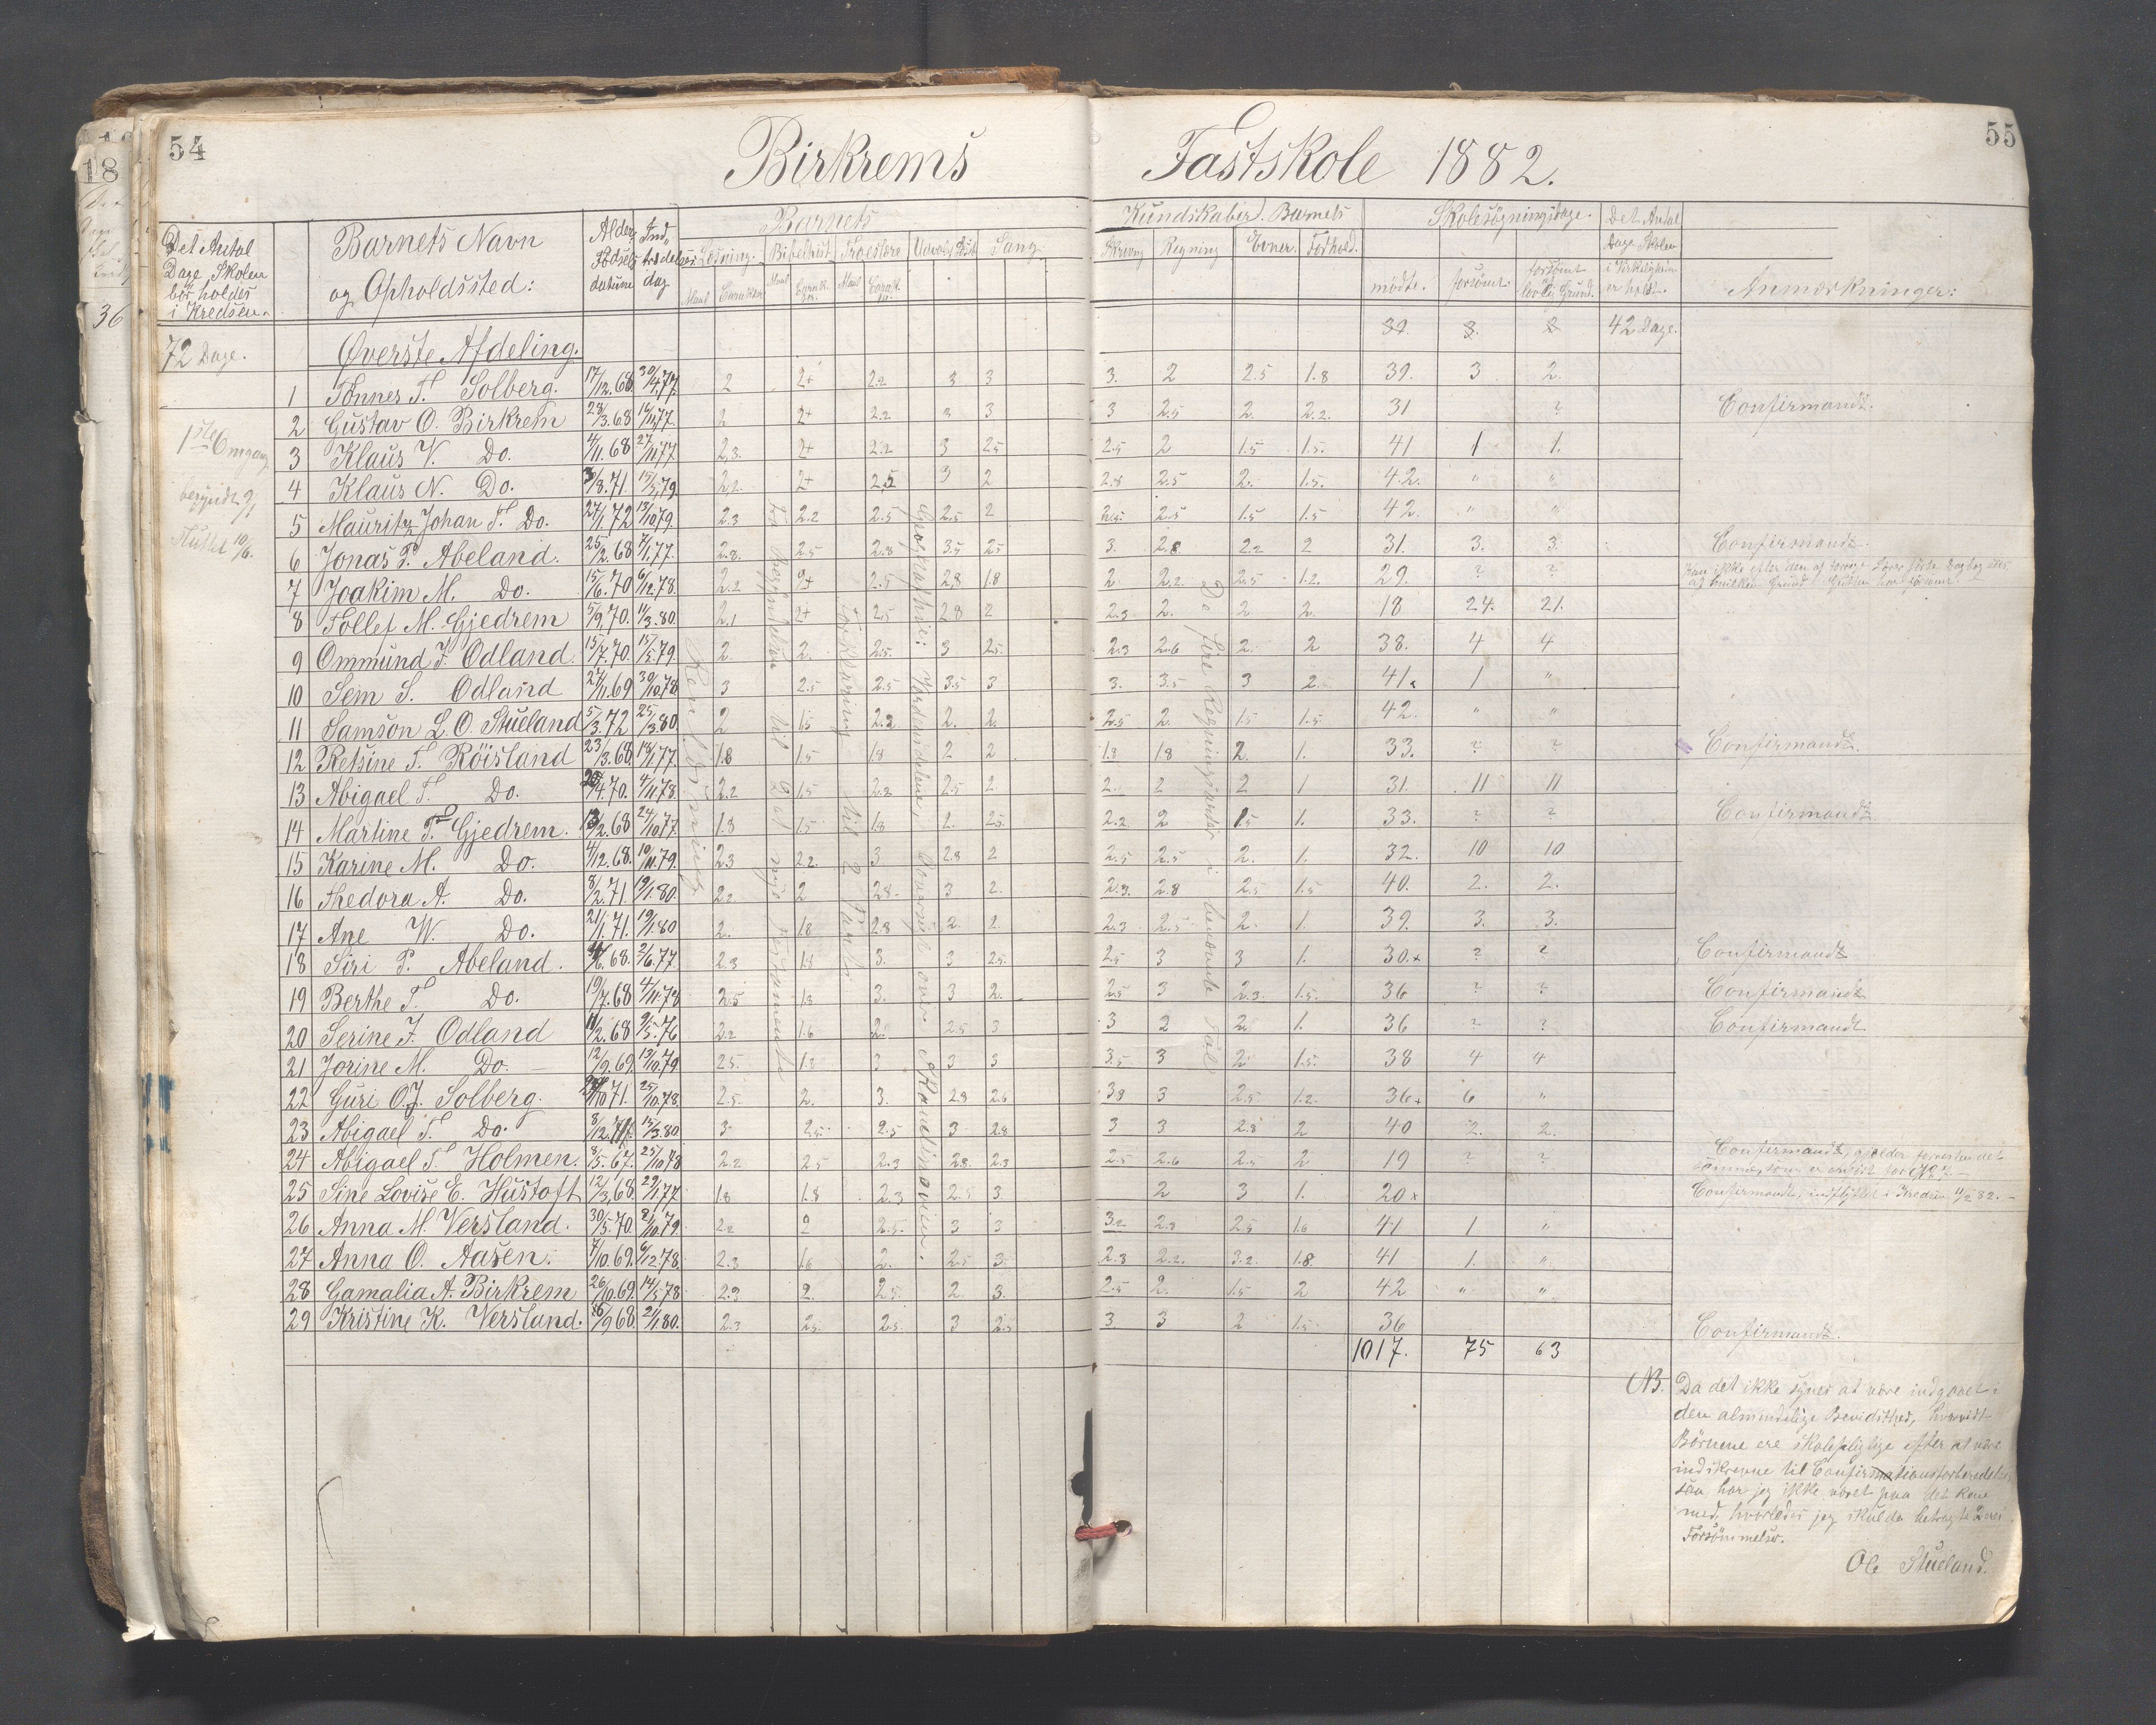 54
55
Birkrems Fastskole 1882.
Det Antal Dage Skolen bör holdes i Kredsen.
Barnets Navn og Opholdssted:
Alder Födsels datum
Ind trædelses dag
Barnets Kundskaber. Barnets
Læsning. Bibelhist. Troeslære Sang.
Maal Carakter Maal Maal
Skrivng Regning Evner. Forhold.
Skolesögningsdage.
mödte. forsömt. forsömt lovlig Grund.
Det Antal Dage Skolen i Virkeligheden er holdt.
Anmærkninger:
72 Dage.
Øverste Afdeling.
39. 3. 2 42 Dage.
1 Tönnes T. Solberg. 17/12.68 30/4.77. 2 2+ 2.2 3 3 3. 2 2.5 1.8 39. 3 2.
2 Gustav O. Birkrem 28/3.68 16/11.77. 2 2+ 2.2 3 3 3 2.5 2. 2.2. 31 ? Confirmandt.
1ste Omgang
3 Klaus V. Do. 4/11.68 27/11.77 2.3. 2+ 2.2 3 2.5 2.5 2 1.5 1.5. 41 1 1.
4 Klaus N. Do. 3/8.71. 15/5.79 2.2. 2+ 2.5 3 2 2.8 2.5 2. 1.5. 42. " "
begyndt 9/1
5 Mauritz Johan T. Do. 27/1.72 13/10.79. 2.3 2.2 2.5 2.5 2 2.5 1.5 1.5 42. " "
Sluttet 10/6.
6 Jonas P. Abeland. 25/2.68 7/1.77. 2.8. 2.5 2.8 3.5 2.5 3. 2.8 2.2 2 31. 3. 3. Confirmandt.
7 Joakim M. Do. 15/6.70 6/12.78. 2.2 2+ 2.5 2.8 1.8 2 2.2. 2.5 1.2. 29. ? ?
8 Tollef M. Gjedrem 5/9.70. 11/3.80. 2.1 2+ 2.5 2.8 2 2.3 2. 2 2. 18 24. 21.
9 Ommund J. Odland. 15/7.70. 15/5.79. 2. 2. 2.5. 3 2.5. 2.3 2.6 2. 2 38. 4 4
10 Sem S. Odland 27/11.69 30/10.78 3 2.5 2.5 3.5 3 3. 3.5 3 2. 41. 1 "
11 Samson L.O. Stueland 5/3.72 25/3.80. 2 1.5 2.2 2. 2. 2.5 2. 1.5 1.5. 42. " "
12 Retsine T. Röisland 23/3.68 18/1.77. 1.8 1.5 1.8 2 2 1.8 1.8 2. 1. 33. ? ? Confirmandt.
13 Abigael T. Do. 4.70. 4/11.78. 2.2 1.5 2.2 2.5 2 2. 2 2 1 31. 11 11
14 Martine T. Gjedrem. 13/2.68 24/10.77. 1.8 1.5 1.8 2. 2.5. 2.2. 2 1.5 1. 33. ? ? Confirmandt.
15 Karine M. Do. 4/12.68. 10/11.79. 2.3 2.2. 3 2.8 2 2.5 2.5 2. 1. 32. 10 10
16 Thedora A. Do. 8/2.71. 19/1.80. 2.2 2 2.8 3 2. 2.3. 2.8 2.5 1.5 40. 2. 2.
17 Ane W. Do. 21/1.71. 19/1.80 2. 1.8 2.8 2. 2. 2.3 2.5 2. 1. 39. 3. 3.
18 Siri P. Abeland. 6.68. 2/6.77. 2.3 1.8 3. 3 2.5. 2.5 3 3 1. 30.+ ? ? Confirmandt
19 Berthe T. Do. 19/7.68 4/11.78 2.5 1.8 3. 3 2. 2.5 3 2.3. 1.5. 36 ? ? Confirmandt
20 Serine J. Odland 11/2.68 9/5.76 2.2 1.6 2. 2.5 3 3 2 2 1. 36 ? ? Confirmandt
21 Jorine M. Do. 12/9.69. 13/10.79 2.5. 1.8 3 3 3 3.5 3 2 1.5. 38 4 4
22 Guri O.J. Solberg. 10.71. 25/10.78. 2.5. 2. 3. 2.8 2.6 3.8 3 2.5 1.2. 36+ 6 "
23 Abigael T. Do. 8/12. 15/3.80. 3 2.5. 2.5 3 2.8 3 3 2.8 2 40 2. 2.
24 Abigael T. Holmen. 8/5.67. 25/10.78 2.2 2.5 2.3 2.8. 2.3 2.5 2.6 2.5 2 19 ? ? Confirmandt,
25 Sine Lovise E. Hustoft 12/3.68. 29/1.77 1.8 1.8 2.3 2.5 3. 2 3 1. 20+ Confirmandt, indflyttet i Kredsen 11/2 82.
26 Anna M. Versland. 30/5.70. 8/10.79. 2.2 2 2.5. 3 3 3.2 2.8 2.5 1.6 41 1 "
27 Anna O. Aasen. 7/10.69. 6/12.78. 2.3 1.6 2. 2.5 3. 2.3 2.2. 3.2. 1.8. 41 1. "
28 Gamalia A. Birkrem 26/10.69. 14/5.78 2.3 2. 2.5. 2. 3. 2.5 2. 1.5 2 42 " "
29 Kristine K. Versland. 16/9.68. 2/1.80. 2.3 2.5. 2.5. 3 2.5 3. 3 2 1.5. 36 Confirmandt.
1017. 75 63
Renlæsning
Fra begyndelsen til Det nye Testamente
Forklaring til 2 Part
Geografhie: Jordens dele, Oversigt over Skandinavien.
De fire Regningsarter i benævnte Tal
NB. Da det ikke synes at være indgaaet i
den almindelige Bevidsthed, hvorvidt
Börnene ere skolepligtige efter at være
indskrevne til Confirmationsforberedelse
saa har jeg ikke været paa det Rene
med, hvorledes jeg skulde betragte Deres
Forsömmelser.
Ole Stueland.
18
36